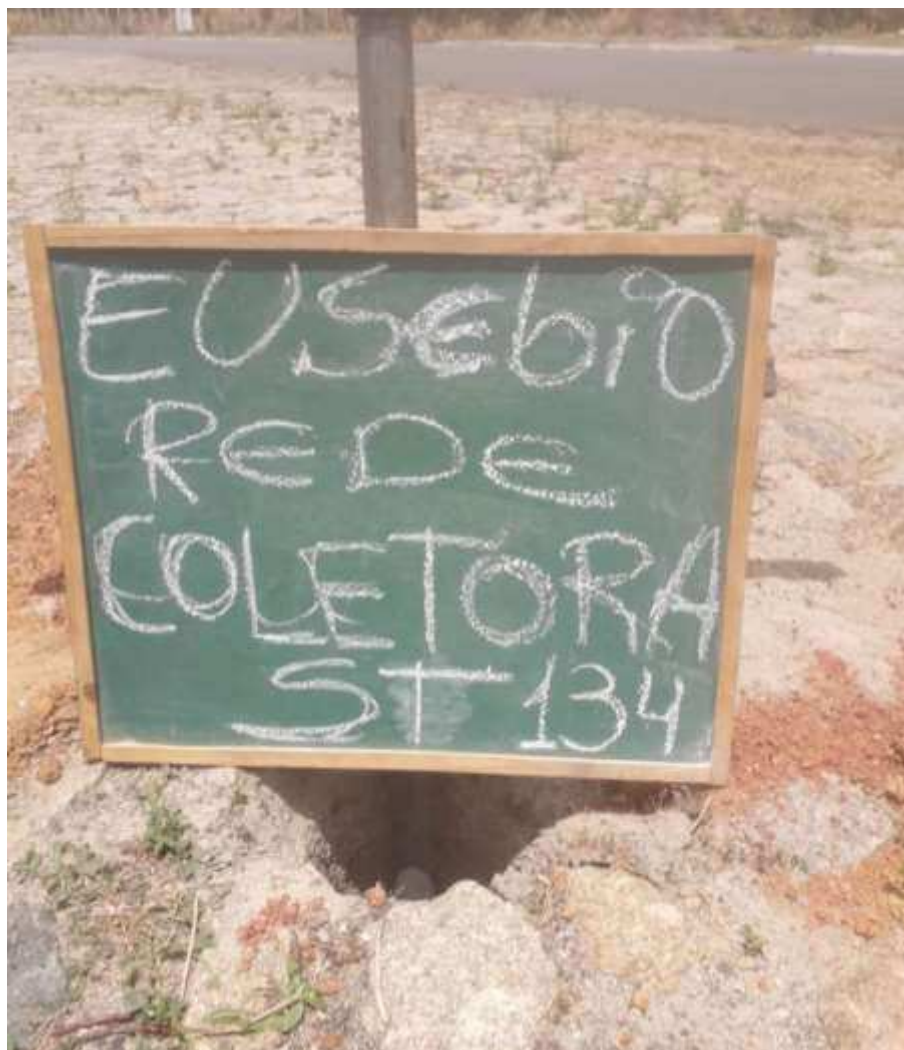 EUSEbiO
REDE
COLETORA
ST 134